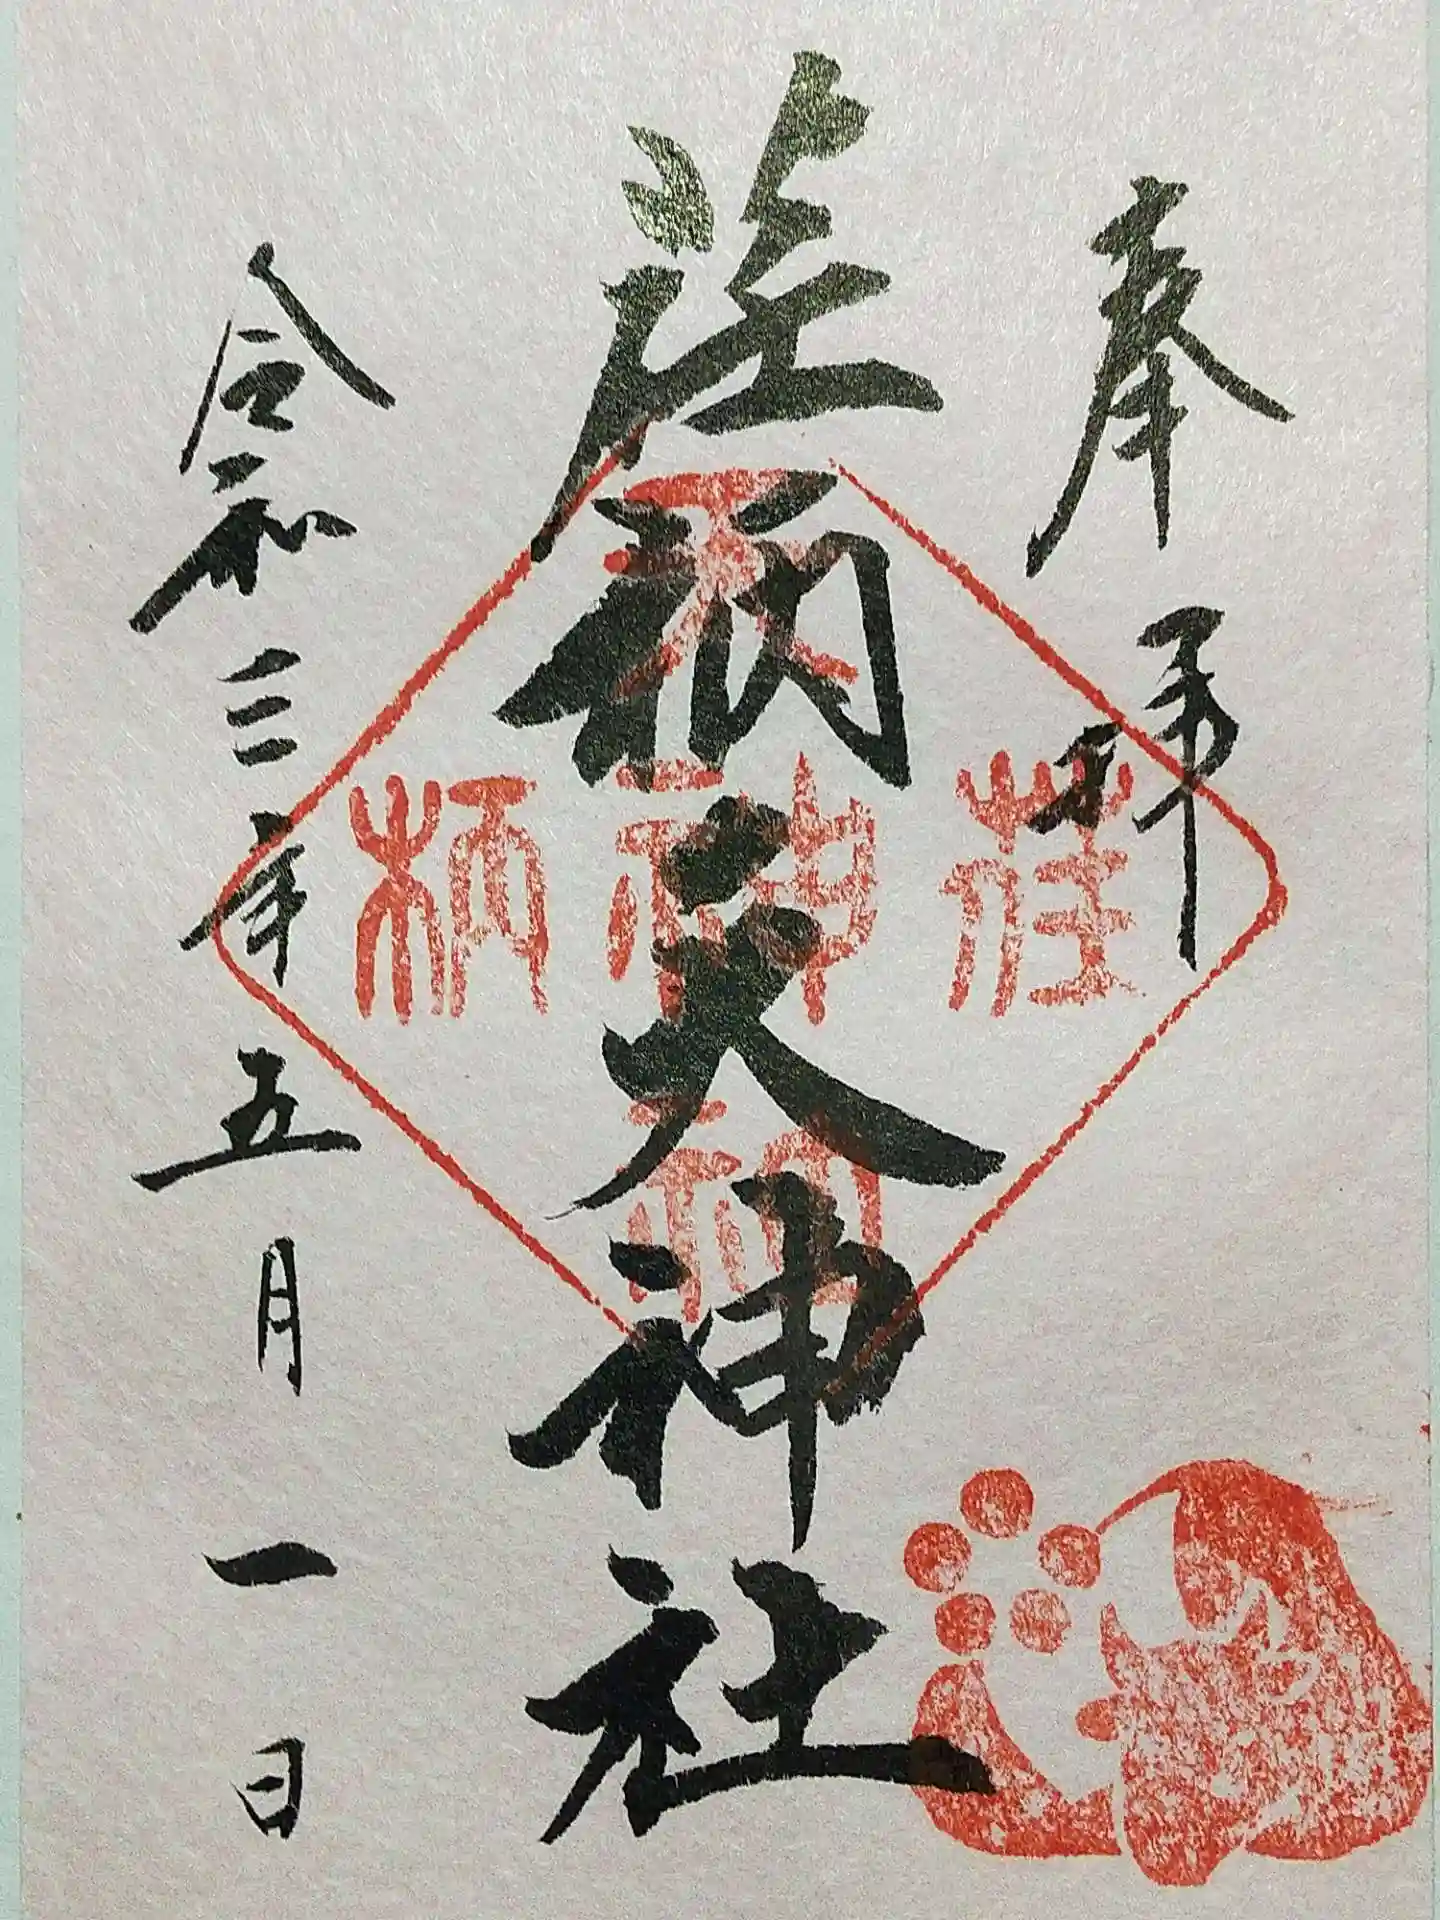 奉拝
荏柄天神社
令和三年五月一日
荏柄
天神